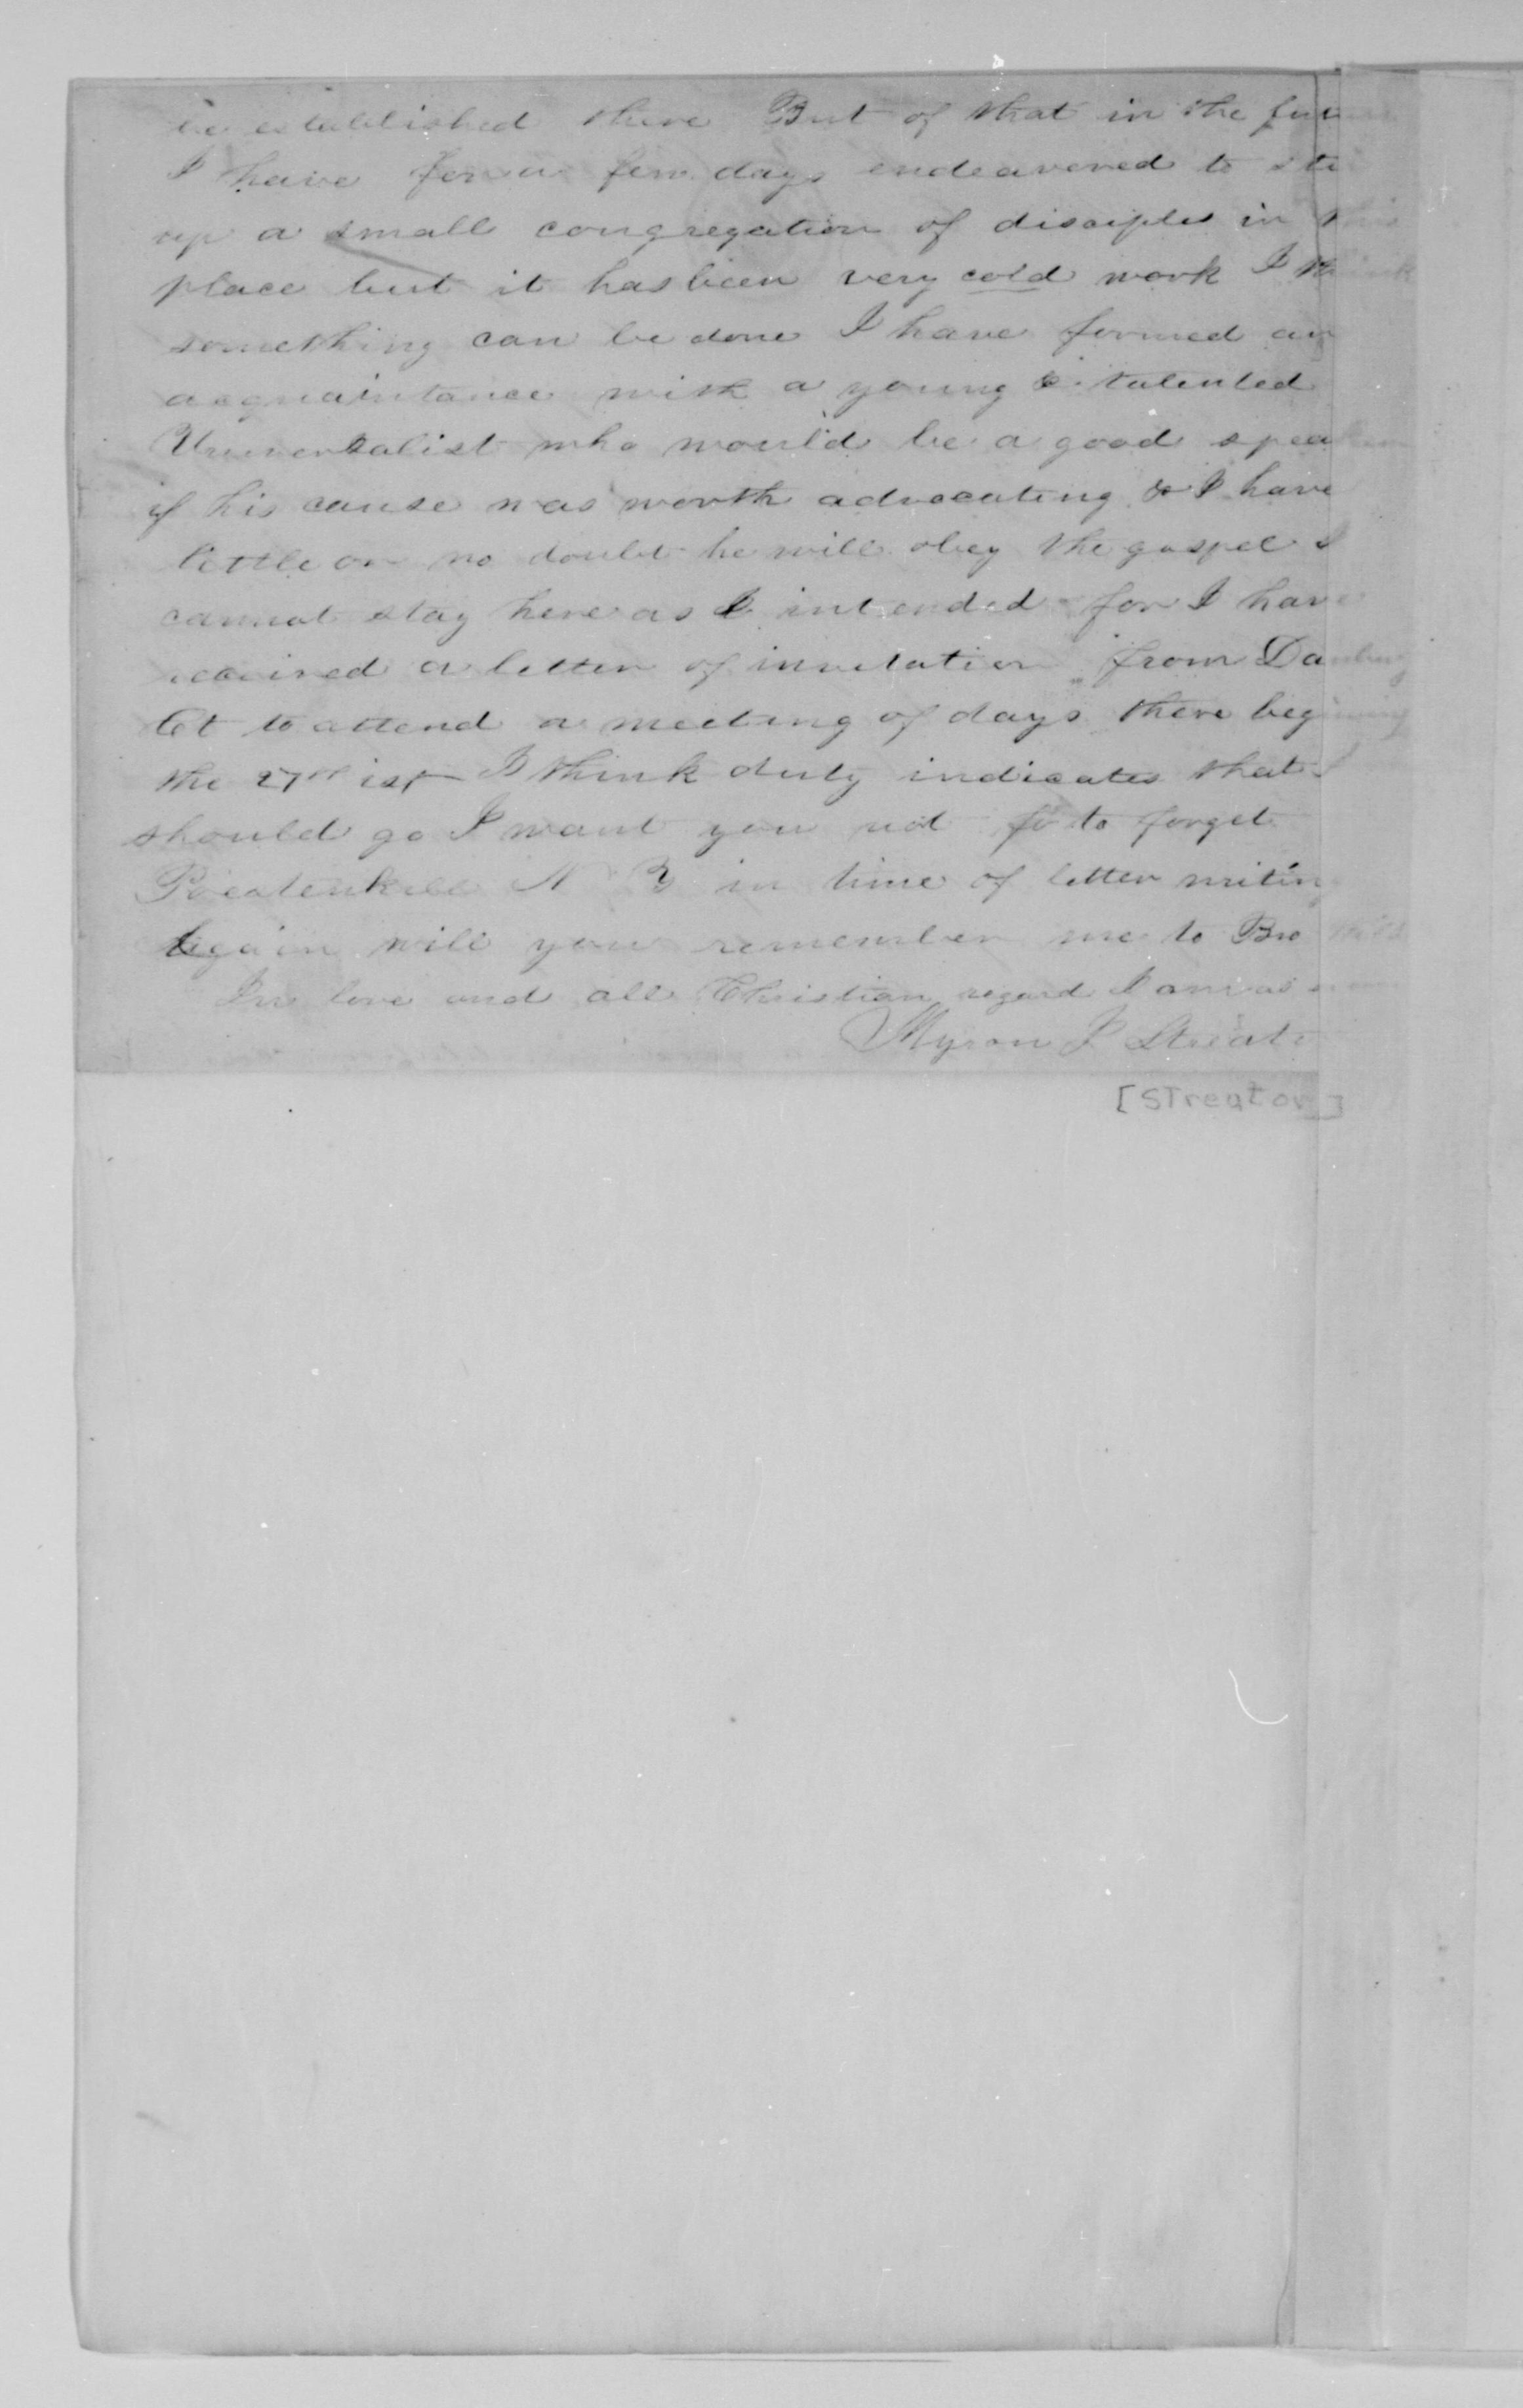 be established there But of that in the future
I have for a few days endeavered to sti
up a small congregation of disciples in this
place but it has been very cold work I think
something can be done I have formed an
acquaintance with a young & talented
Universalist who would be a good speaker
if his cause was worth advocating & I have
little or no doubt he will obey the gospel I
cannot stay here as I intended for I have
received a letter of invitation from Danbury
Ct to attend a meeting of days there begining
the 27th ist I think duty indicates that I
should go I want you not fo to forget
Poeatenkill N Y in time of letter writing
Again will you remember me to Bro
In love and all Christian regard I am as
Myron J Streato
[STreator]